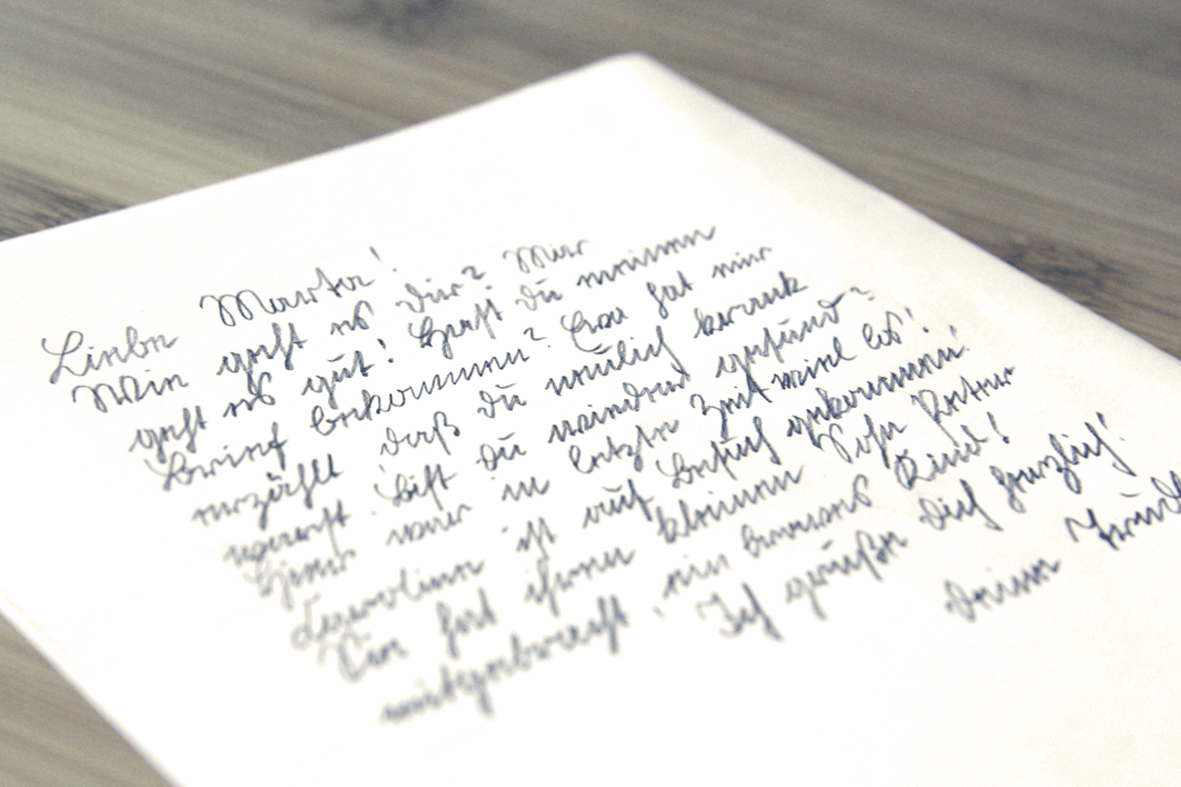 Liebe Marta!
Wie geht es dir? Mir
geht es gut! Hast du meinen
Brief bekommen? Eva hat mir
erzählt daß du neulich krank
warst. Bist du wieder gesund?
Hier war in letzter Zeit viel los!
Caroline ist auf Besuch gekommen!
Sie hat ihren kleinen Sohn Peter
mitgebracht, ein braves Kind!
Ich grüße dich herzlich!
Deine